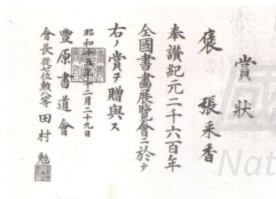 褒賞狀
張釆香
奉讚紀元二千六百年
全國書畫展覽會ニ於テ
右ノ賞ヲ贈與ス
昭和十五年十二月二十九日
豐原書道會
會長從七位勲八等田村勉
Nat